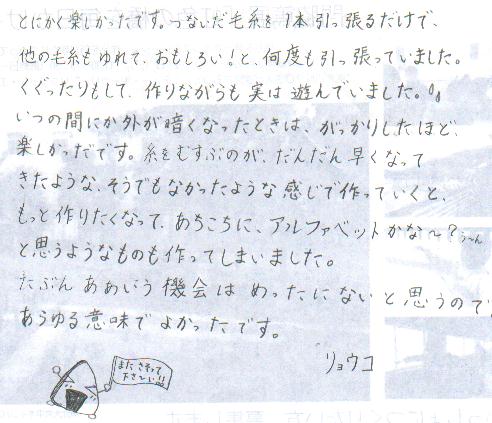 とにかく楽しかったです。つないだ毛糸を1本引っ張るだけで、
他の毛糸もゆれて、おもしろい!と、何度も引っ張っていました。
くぐったりもして、作りながらも実は遊んでいました。
いつの間にか外が暗くなったときは、がっかりしたほど、
楽しかっだです。糸をむすぶのが、だんだん早くなって
きたような、そうでもなかったような感じで作っていくと、
もっと作りたくなって、あちこちに、アルファベットかな〜?う〜ん
と思うようなものも作ってしまいました。
たぶんああいう機会はめったにないと思うので
あらゆる意味でよかったです。
リョウコ
またさそって
下さい!!